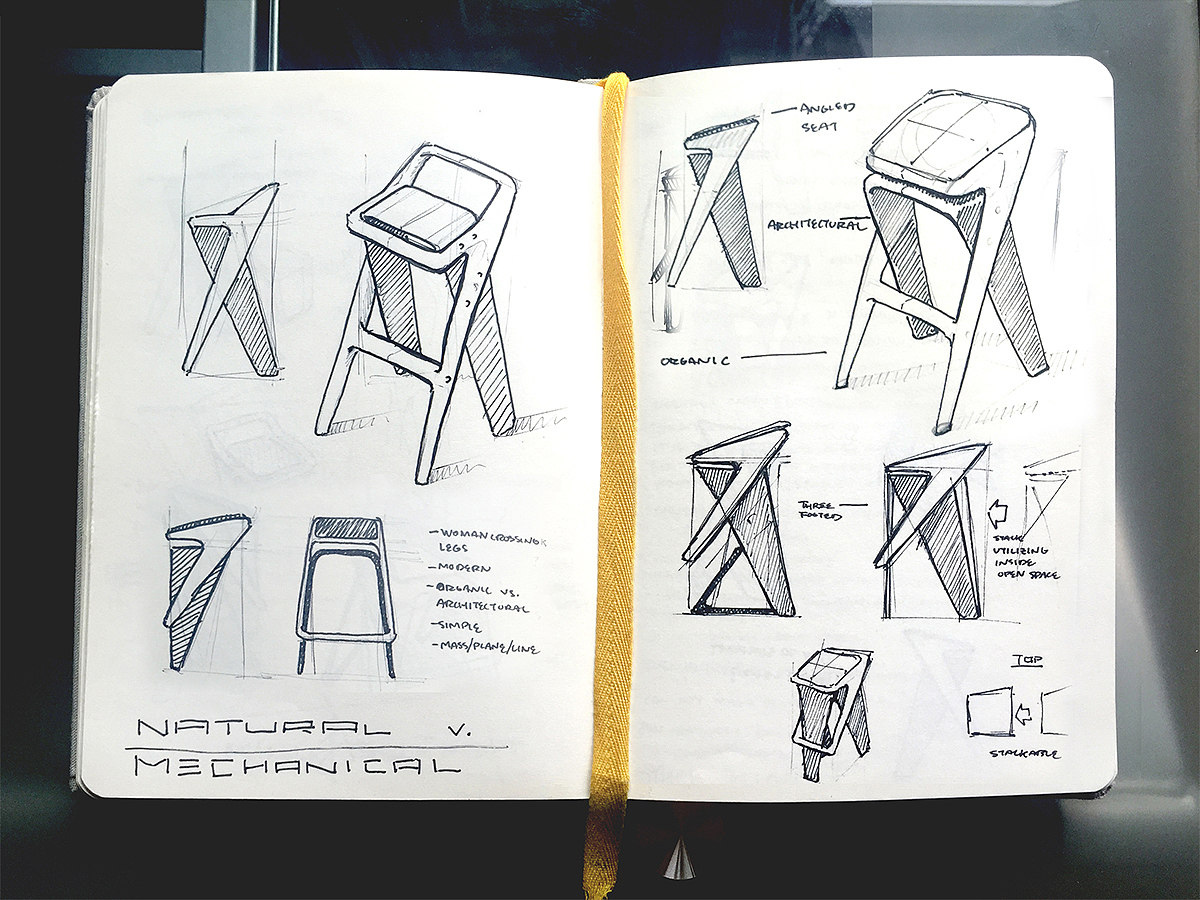 – WOMAN CROSSING
LEGS
– MODERN
– ORGANIC VS.
ARCHITECTURAL
– SIMPLE
– MASS/PLANE/LINE
NATURAL V.
MECHANICAL
– ANGLED
SEAT
ARCHITECTURAL
ORGANIC
THREE
FOOTED
STACK
UTILIZING
INSIDE
OPEN SPACE
TOP
STACKABLE